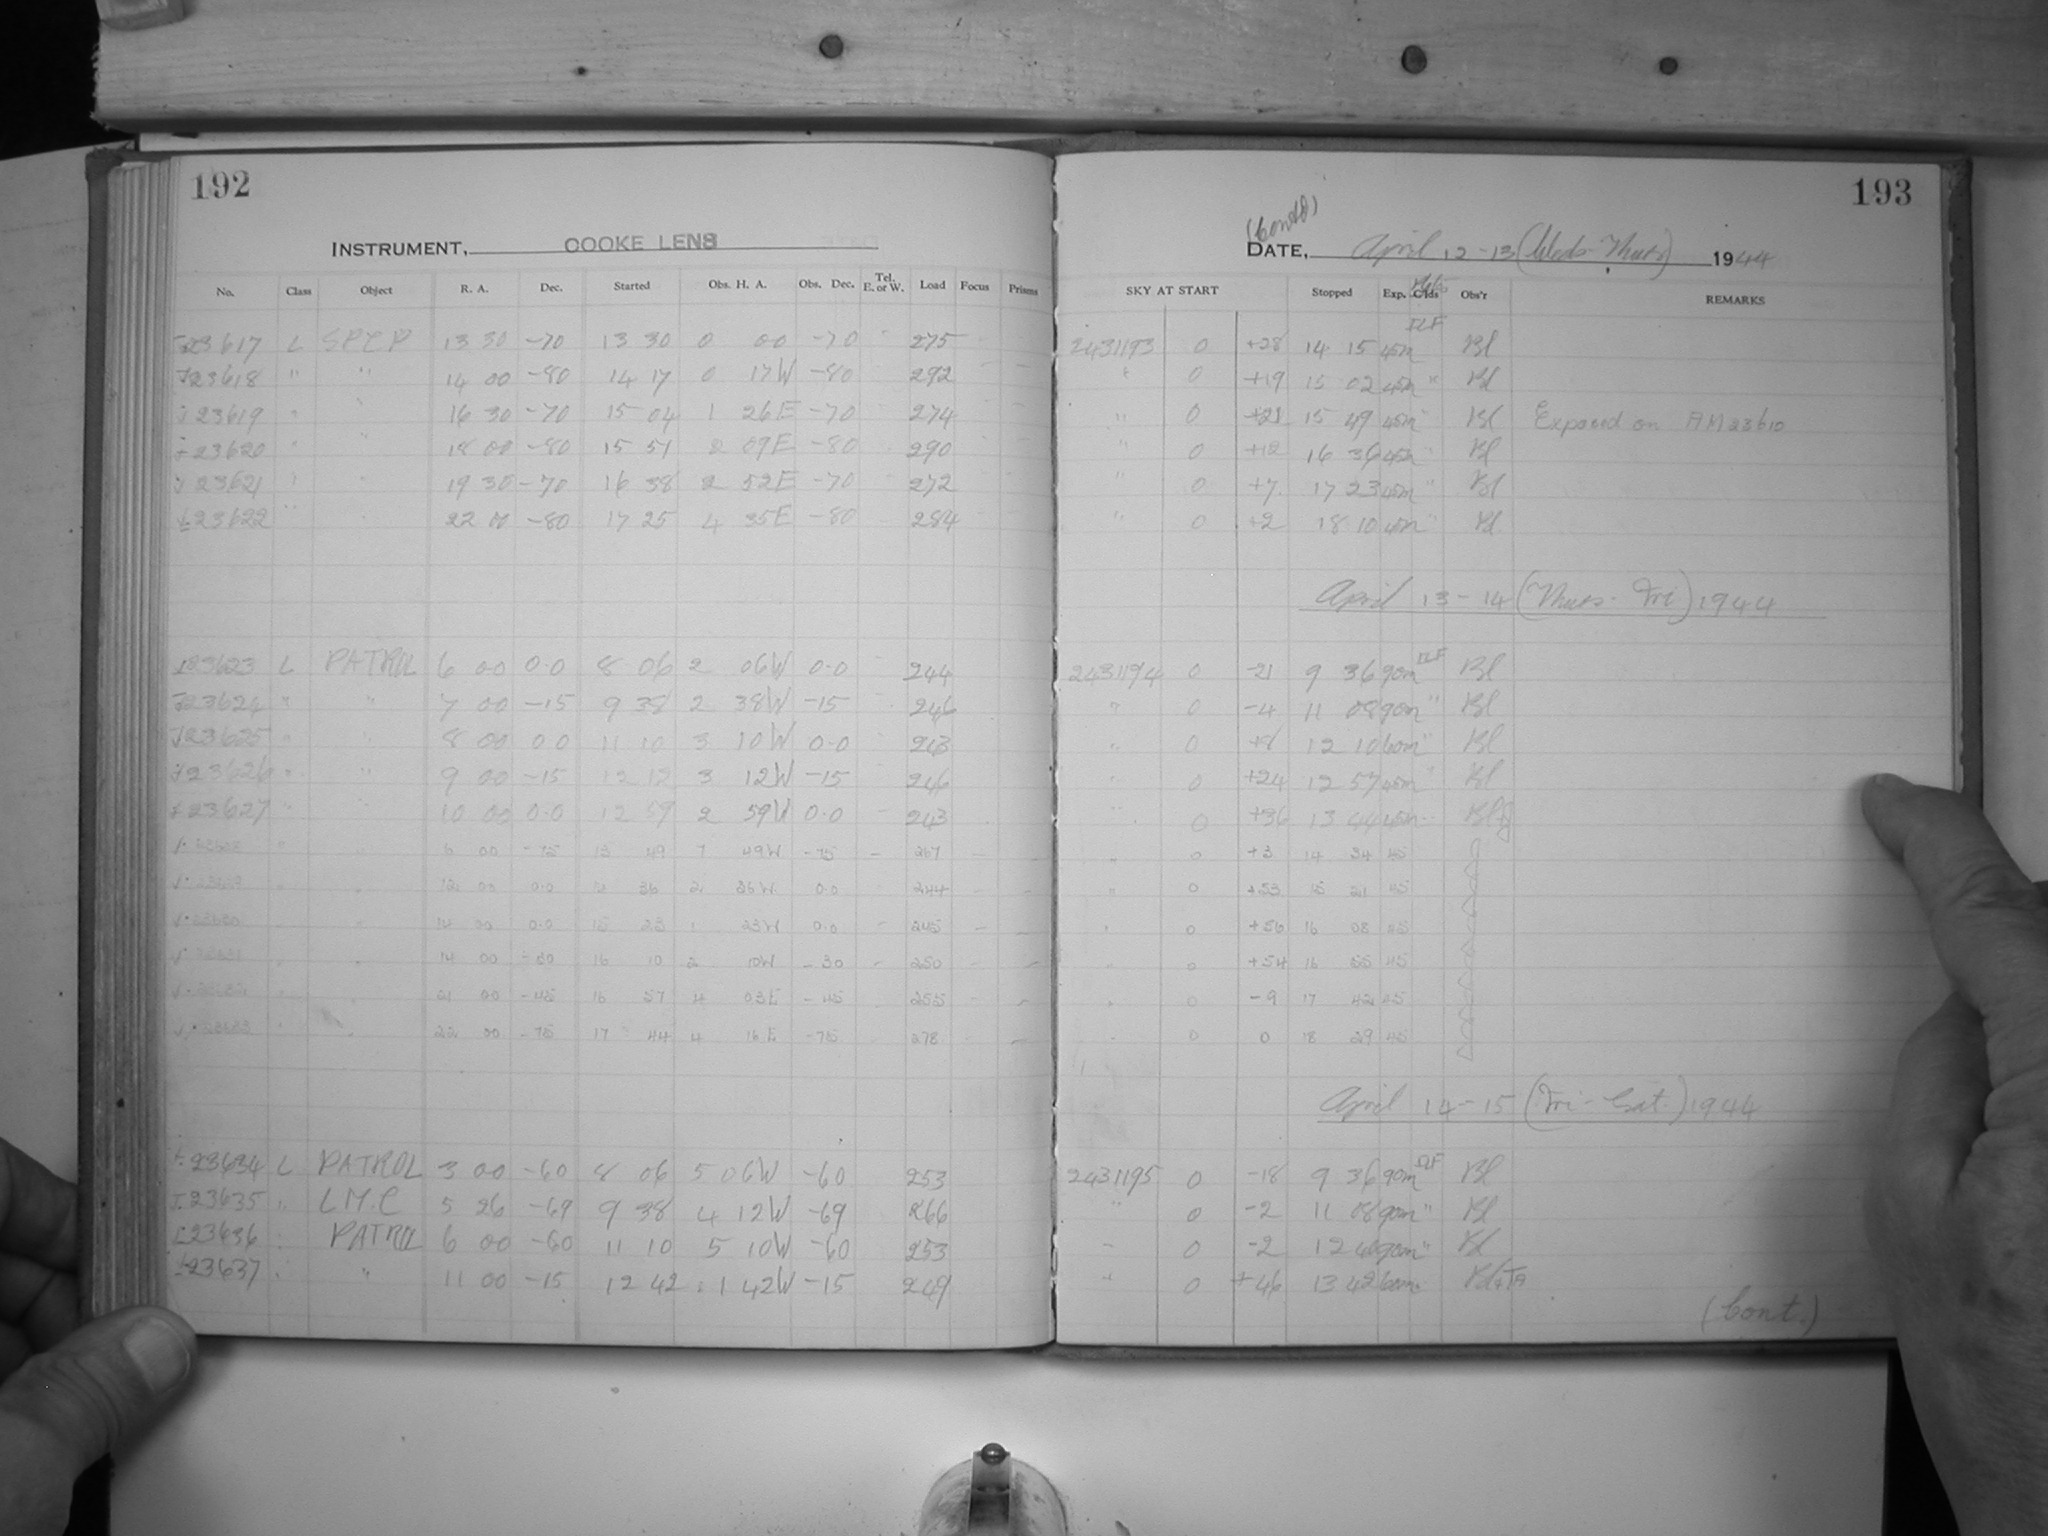 192
INSTRUMENT, COOKE LENS
No. Class Object R. A. Dec. Started Obs. H. A. Obs. Dec. Tel. E. or W. Load Focus Prisms
23617 L 13 30 -70 13 30 0 00 -70 275
23618 " " 14 00 -80 14 17 0 17W -80 292
23619 " " 16 30 -70 15 04 1 26E -70 274
23620 " " 18 00 -80 15 51 2 09E -80 290
23621 " " 19 30 -70 16 38 2 52E -70 272
23622 " " 22 00 -80 17 25 4 35E -80 284
23623 L PATROL 6 00 0.0 8 06 2 06W 0.0 244
23624 " " 7 00 -15 9 38 2 38W -15 246
23625 " " 8 00 0 0 11 10 3 10W 0.0 243
23626 " " 9 00 -15 12 12 3 12W -15 246
23627 " " 10 00 0.0 12 59 2 59W 0.0 243
" " 6 00 -75 13 49 7 49W -75 - 267 - -
" " 12 00 0.0 14 36 2 36W 0.0 244 - -
" " 14 00 0.0 15 23 1 23W 0.0 - 245 - -
" " 14 00 -30 16 10 2 10W -30 - 250 - -
" " 21 00 -45 16 57 4 03E -45 255 - -
" " 22 00 -75 17 44 4 16E -75 278 - -
23634 L PATROL 3 00 -60 8 06 5 06W -60 253
23635 " L.M.C 5 26 -69 9 38 4 12W -69 266
23636 " PATROL 6 00 -60 11 10 5 10W -60 253
23637 " " 11 00 -15 12 42 1 42W -15 249
193
(Contd)
DATE, April 12-13 (Weds-Thurs) 1944
SKY AT START Stopped Exp. Clds Obs'r REMARKS
2431193 0 +28 14 15 45m ILF Bl
" 0 +19 15 02 45m " Bl
" 0 +21 15 49 45m " Bl Exposed on AM23610
" 0 +12 16 36 45m " Bl
" 0 +7 17 23 45m " Bl
" 0 +2 18 10 45m " Bl
April 13-14 (Thurs-Fri) 1944
2431194 0 -21 9 36 90m ILF Bl
" 0 -4 11 08 90m " Bl
" 0 12 10 60m " Bl
" 0 +24 12 57 45m " Bl
" 0 +36 13 44 45m "
" 0 +3 14 34 45
" 0 +53 15 21 45
" 0 +56 16 08 45
" 0 +54 16 55 45
" 0 -9 17 42 45
" 0 0 18 29 45
April 14-15 (Fri-Sat.) 1944
2431195 0 -18 9 36 90m ILF Bl
" 0 -2 11 08 90m " Bl
" 0 -2 12 40 90m " Bl
" 0 +46 13 42 60m
(Cont.)